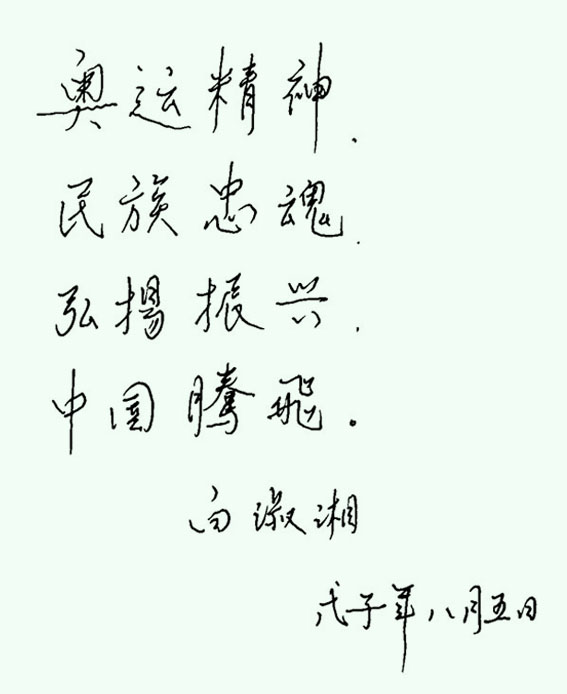 奥运精神.
民族忠魂.
弘揚振兴.
中国騰飛.
白淑湘
戊子年八月五日